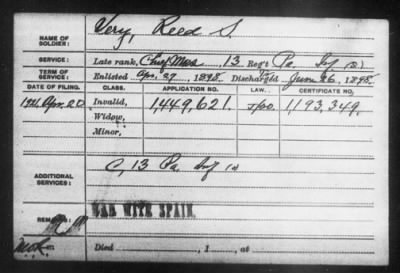 NAME OF SOLDIER: Very, Reed S.
SERVICE: Late rank, Chf Mus 13 Reg't Pa. Inf
TERM OF SERVICE: Enlisted Apr. 27, 1898 Discharged June 26, 1898
DATE OF FILING. CLASS. APPLICATION NO. LAW. CERTIFICATE NO.
1921 Apr. 20 Invalid, 1,449,621. 1,193,349.
Widow,
Minor,
ADDITIONAL SERVICES: C, 13 Pa. Inf
REMARKS: WAR WITH SPAIN.
Died , 1 , at